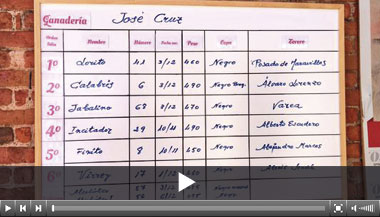 Ganadería José Cruz
Nombre Número Peso Torero
1º Lorito 41 3/12 460 Negro Posada de Maravillas
2º Calabrés 6 3/12 490 Negro Álvaro Lorenzo
3º Jabalino 68 2/12 470 Negro Varea
4º Incitador 29 10/11 490 Negro Alberto Escudero
5º Finito 8 10/11 450 Negro Alejandro Marcos
6º Virrey 17